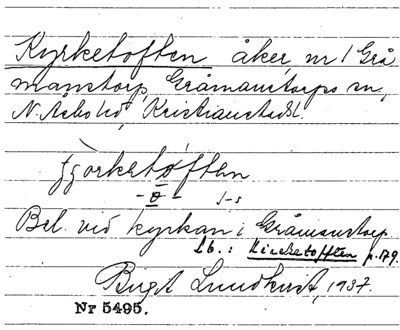 Kyrketoften åker, nr 1 Grå
manstorp Gråmanstorps sn,
N. Åsbo hd, Kristianstads l.
tjörketoften
Bel. vid kyrkan i Gråmanstorp
Lb.: Kirketofften p. 179.
Birgit Lundkvist, 1937.
Nr 5495.